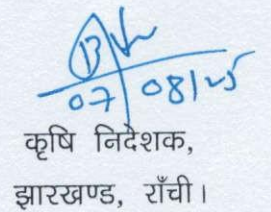 07/08/25
कृषि निदेशक,
झारखण्ड, राँची।